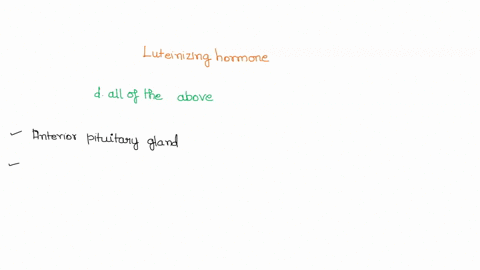 Luteinizing hormone
d. all of the above
✓ Anterior pituitary gland
✓